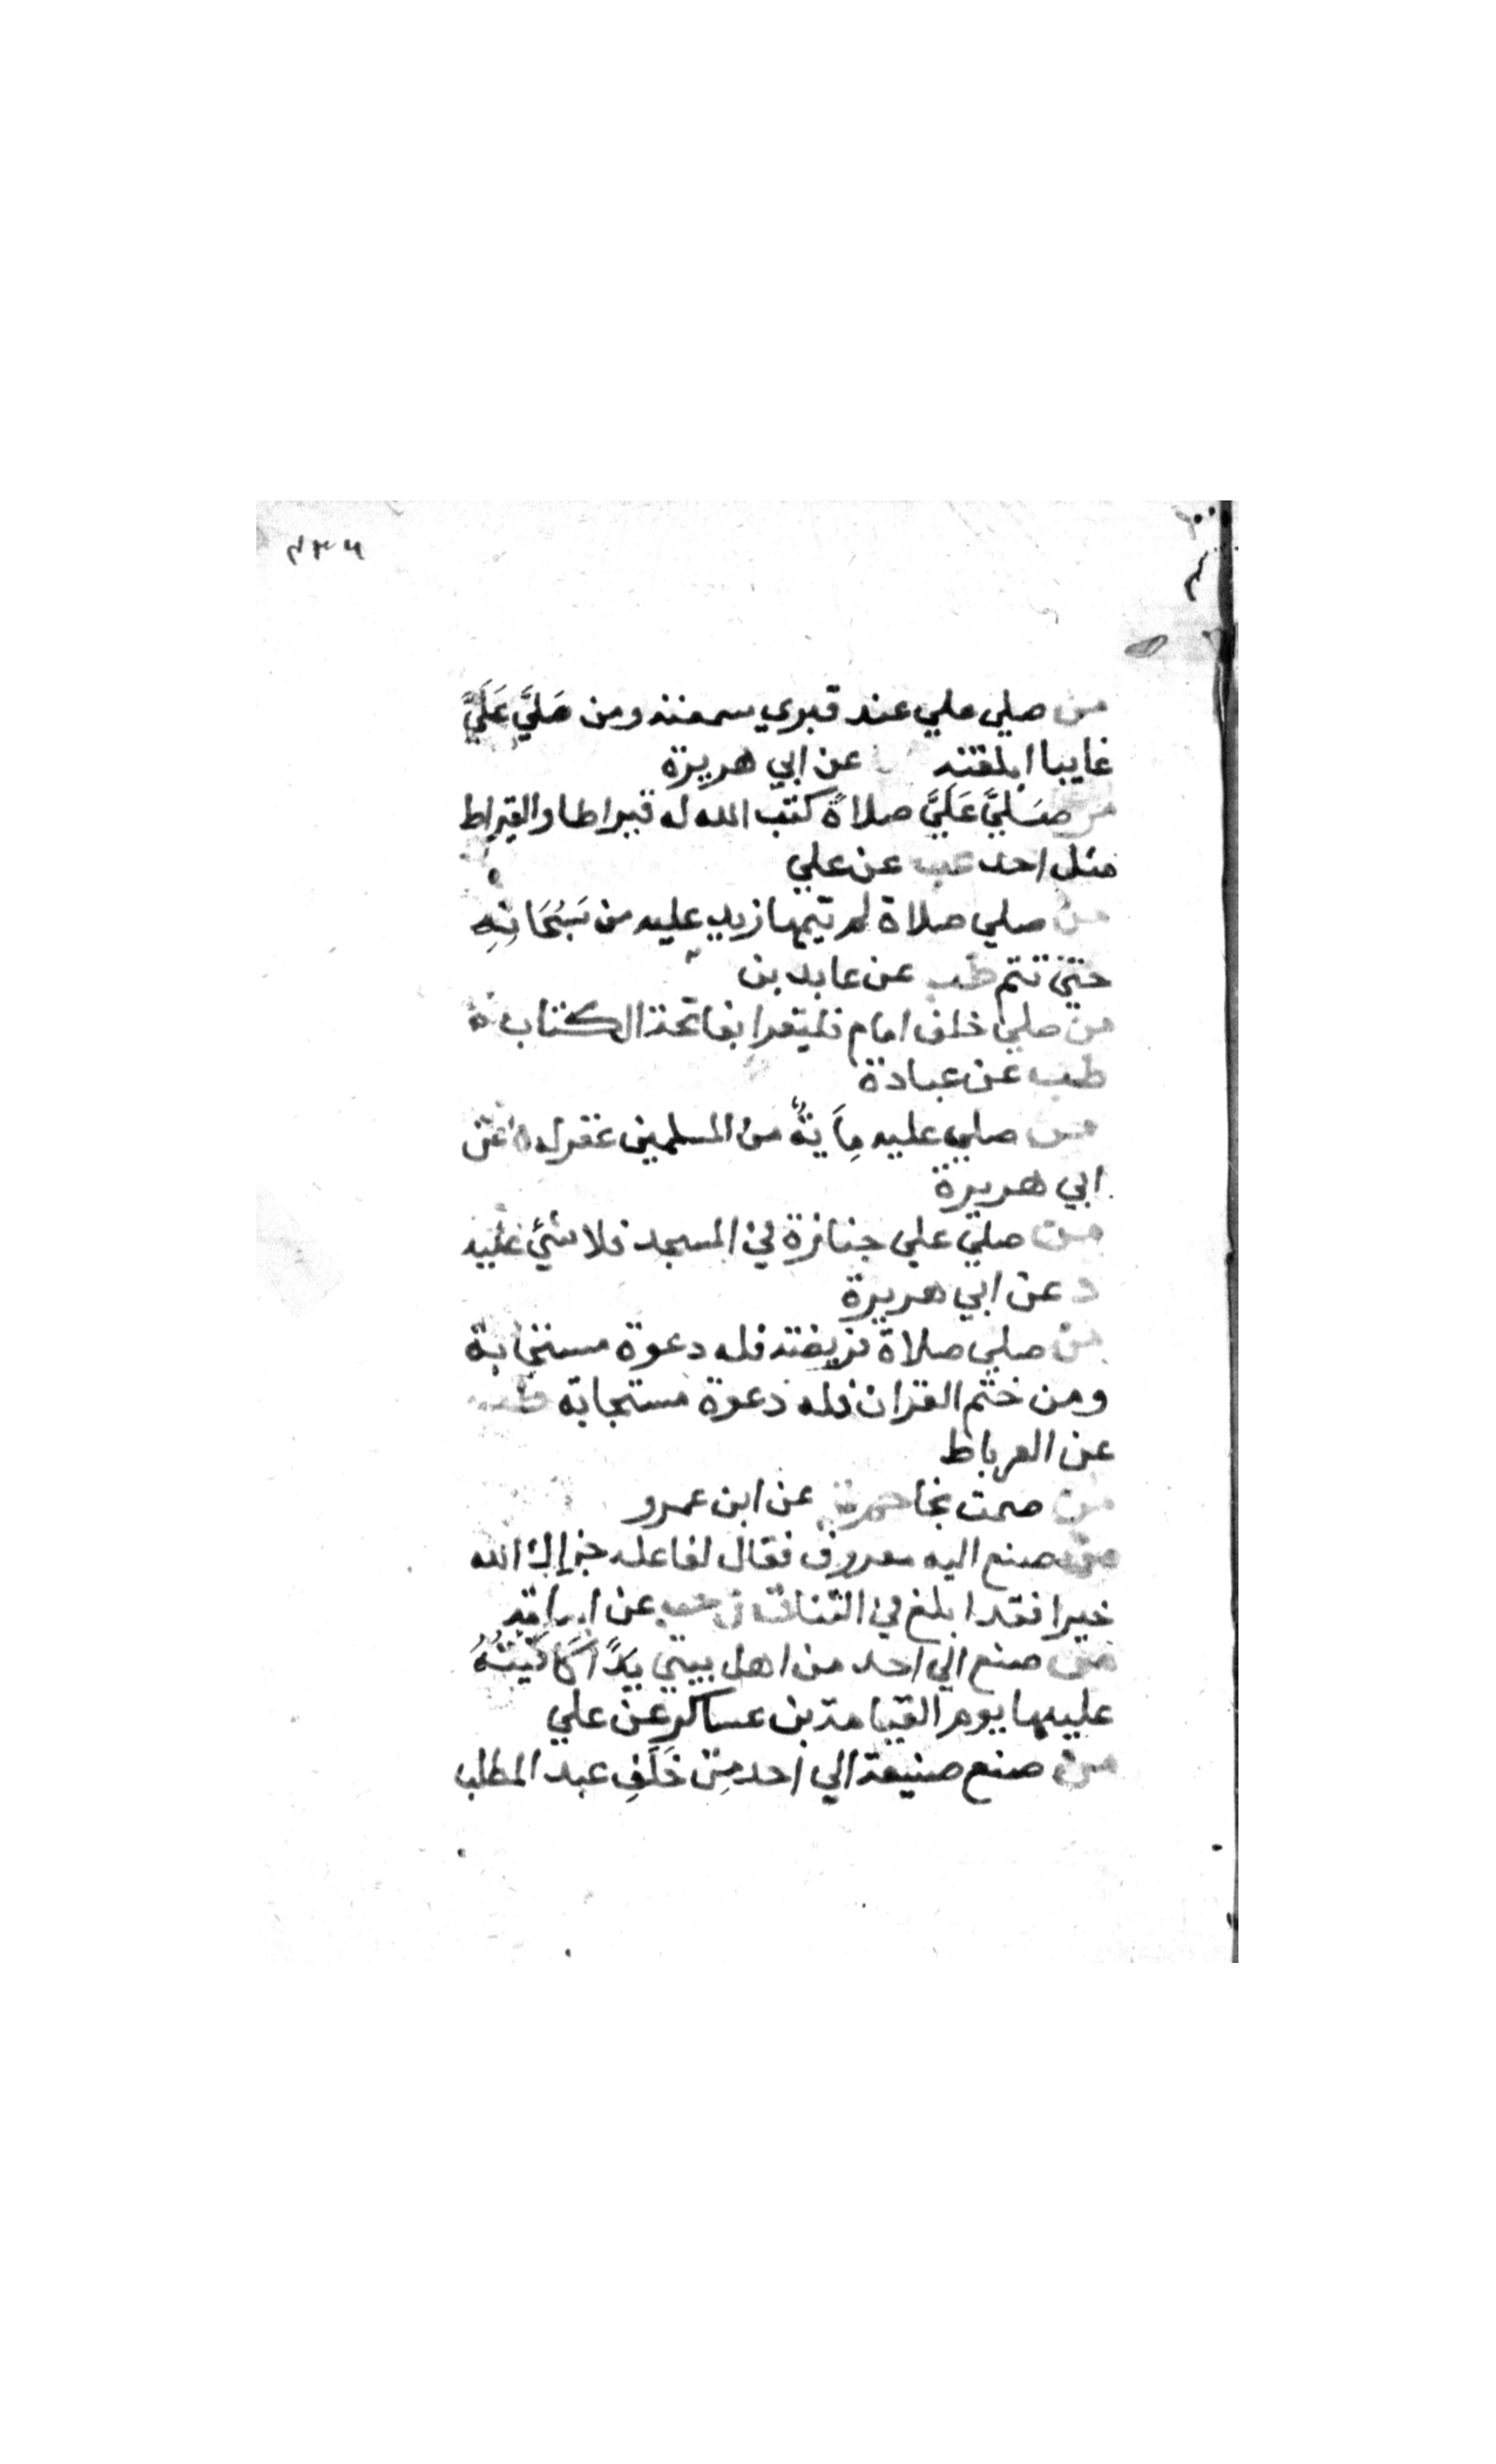 من صلي علي عند قبري سمعته ومن صَليَّ عَلَيَّ
غايبا ابلغته عن ابي هريرة
من صَليَّ عَلَيَّ صلاةً كتب الله له قيراطا والقيراط
مثل احد عب عن علي
من صلي صلاة لم يتمها زيد عليه من سَبُحَاتِهِ
حتي تتم طب عن عايد بن
من صلي خلف امام فليقرا بفاتحة الكتاب
طب عن عبادة
من صلي عليه مِاَيةٌ من المسلمين غفر له ه عن
ابي هريرة
من صلي علي جنازة في المسجد فلا شيَ عليه
د عن ابي هريرة
من صلي صلاة فريضة فله دعوة مستجابة
ومن ختم القران فله دعوة مستجابة طب
عن العرباط
من صمت نجا حم ت عن ابن عمرو
من صنع اليه معروف فقال لفاعله جزاك الله
خيرا فقد ابلغ في الثناء ت ن حب عن
من صنع الي احد من اهل بيتي يَدًا كافَيْتُهُ
عليها يوم القيامة بن عساكر عن علي
من صنع صنيعة الي احد مِن خَلَفِ عبد المطلب